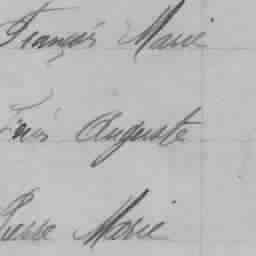 François Marie
Auguste
Pierre Marie